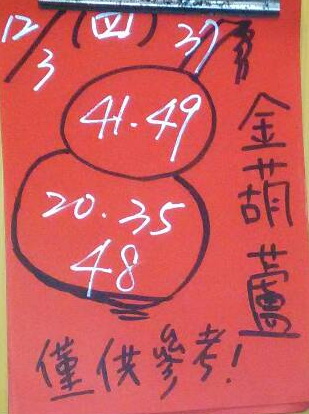 12/3 (四) 37
41.49
20.35
48
金葫蘆
僅供參考!